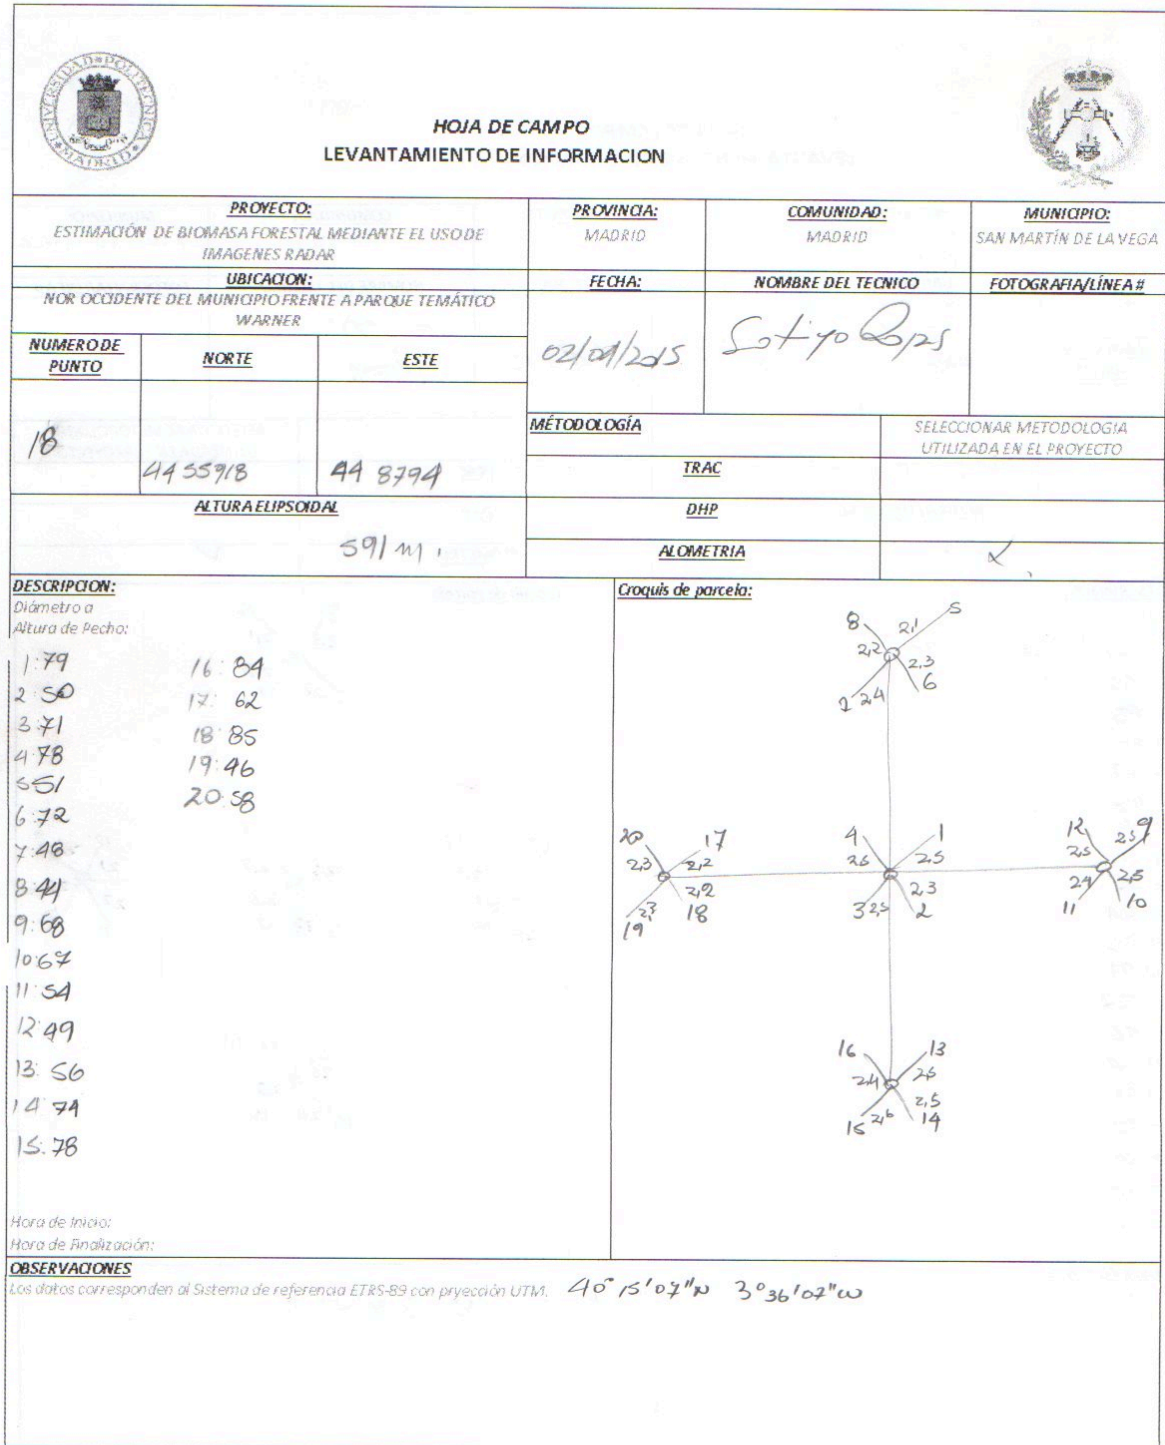 UNIVERSIDAD POLITECNICA
MADRID
HOJA DE CAMPO
LEVANTAMIENTO DE INFORMACION
PROYECTO:
ESTIMACIÓN DE BIOMASA FORESTAL MEDIANTE EL USO DE
IMAGENES RADAR
PROVINCIA:
MADRID
COMUNIDAD:
MADRID
MUNICIPIO:
SAN MARTÍN DE LA VEGA
UBICACION:
NOR OCCIDENTE DEL MUNICIPIO FRENTE A PARQUE TEMÁTICO
WARNER
FECHA:
NOMBRE DEL TECNICO
FOTOGRAFIA/LÍNEA #
NUMERO DE
PUNTO
NORTE
ESTE
18
4455918
44 8794
ALTURA ELIPSOIDAL
591 m.
MÉTODOLOGÍA
SELECCIONAR METODOLOGIA
UTILIZADA EN EL PROYECTO
TRAC
DHP
ALOMETRIA
X
DESCRIPCION:
Diámetro a
Altura de Pecho:
1:79
2 50
3:71
4:78
5 51
6:72
7:48
8:44
9:68
10:67
11:54
12:49
13: 56
14 74
15:78
16: 84
17: 62
18: 85
19:46
20:58
Croquis de parcela:
8 2,1 5
2,2 2,3
2,4 6
20 17
2,3 2,2
2,2
19 2,3 18
4 1
2,5
2,3
3 2,5 2
12 2,5 9
2,5
2,4 2,5
11 10
16 13
2,4 2,5
2,5
15 2,6 14
Hora de Inicio:
Hora de Finalización:
OBSERVACIONES
Los datos corresponden al Sistema de referencia ETRS-89 con pryección UTM. 40° 15' 07" N 3° 36' 07" W